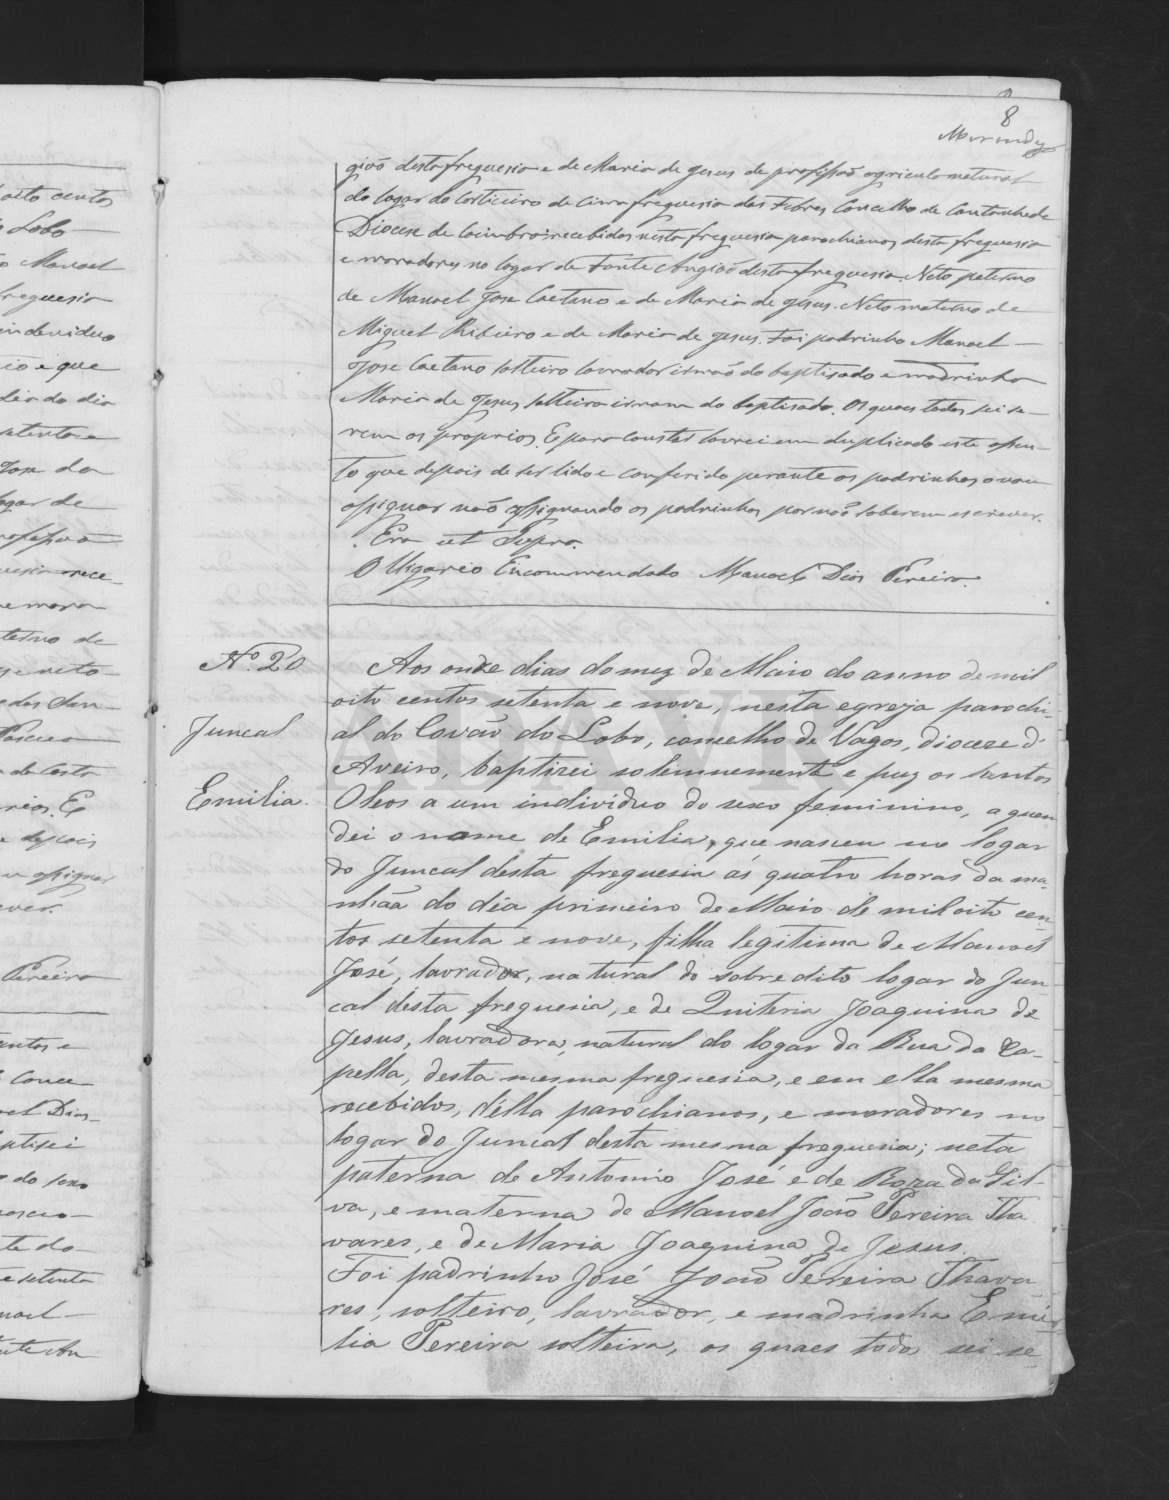 8
gião desta freguesia e de Maria de Jesus de profissão agricula natural
do logar do Corticeiro de Cima freguesia das Febres Concelho de Cantanhede
Diocese de Coimbra recebidos nesta freguesia parochianos desta freguesia
e moradores no logar da Fonte Angião desta freguesia. Neto paterno
de Manoel Jose Caetano e de Maria de Jesus. Neto materno de
Miguel Ribeiro e de Maria de Jesus. Foi padrinho Manoel
Jose Caetano solteiro lavrador irmaõ do baptisado e madrinha
Maria de Jesus solteira irmam do baptisado. Os quaes todos sei se-
rem os proprios. E para constar lavrei em duplicado este assen-
to que depois de ser lido e conferido perante os padrinhos o vou
assignar naõ assignando os padrinhos por naõ saberem escrever.
Era ut Supra.
O Vigario Encommendado Manoel Dias Pereira.
Nº 20
Juncal
Emilia.
Aos onze dias do mez de Maio do anno de mil
oito centos setenta e nove, nesta egreja parochi-
al do Covaõ do Lobo, concelho de Vagos, diocese d'
Aveiro, baptizei solemnemente e puz os santos
Oleos a um individuo do sexo feminino, a quem
dei o nome de Emilia, que nasceu no logar
do Juncal desta freguesia ás quatro horas da ma-
nhãa do dia primeiro de Maio de mil oito cen-
tos setenta e nove, filha legitima de Manoel
José, lavrador, natural do sobredito logar do Jun-
cal desta freguesia, e de Quiteria Joaquina de
Jesus, lavradora, natural do logar da Rua da Ca-
pella, desta mesma freguesia, e em ella mesma
recebidos, d'ella parochianos, e moradores no
logar do Juncal desta mesma freguesia; neta
paterna de Antonio José e de Roza da Sil-
va, e materna de Manoel João Pereira Tha
vares, e de Maria Joaquina de Jesus.
Foi padrinho José João Pereira Thava
res, solteiro, lavrador, e madrinha Emi-
lia Pereira solteira, os quaes todos sei se-